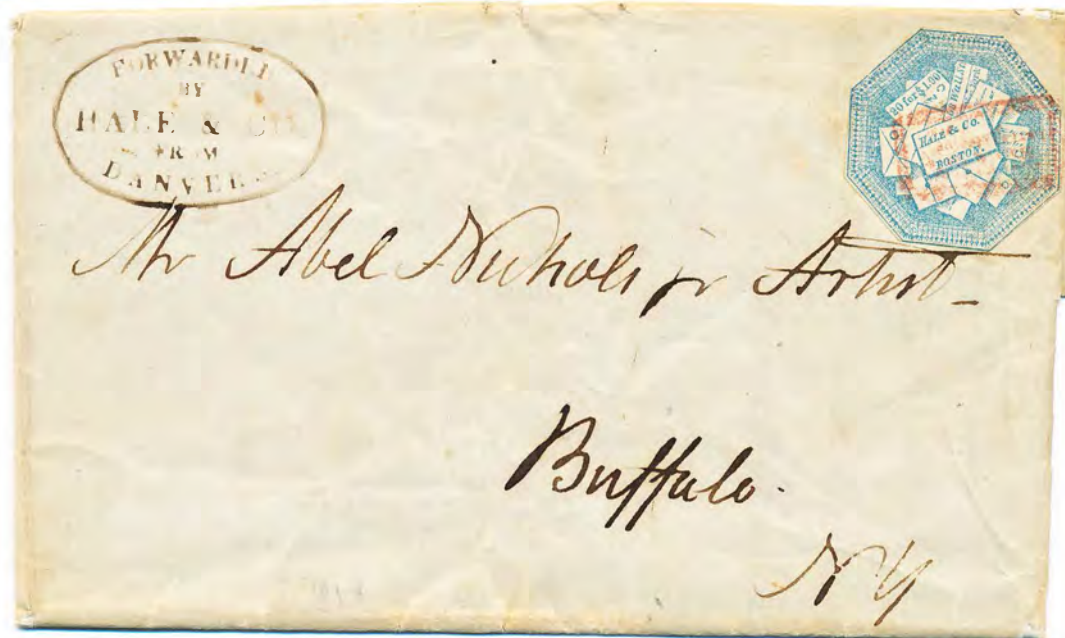 FORWARDED
BY
HALE & CO.
FROM
DANVERS
20 for $1.00
HALE & Co.
BOSTON.
Mr Abel Nichols jr Artist
Buffalo.
NY